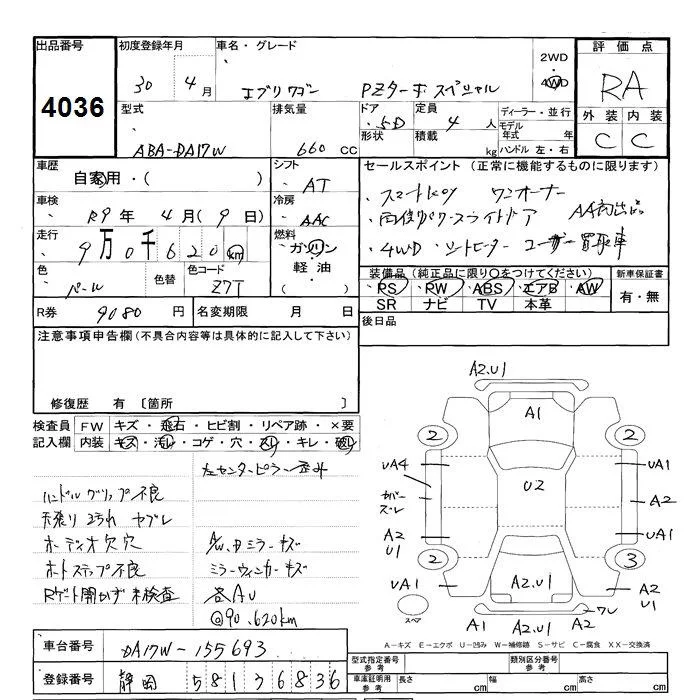 出品番号 初度登録年月 車名・グレード 2WD 評価点
4036 30年 4月 エブリワゴン PZターボスペシャル 4WD RA
型式 排気量 ドア 定員 ディーラー・並行 外装 内装
ABA-DA17W 660 CC 5D 4人 モデル年式 年式 C C
形状 積載 kg ハンドル 左・右
車歴 シフト セールスポイント (正常に機能するものに限ります)
自家用・( ) AT ・スマートキー ワンオーナー
車検 冷房 ・両側パワースライドドア AA初出品
R9年 4月(9日) AAC ・4WD シートヒーター ユーザー買取車
走行 燃料
9万0千620km ガソリン
色 色替 色コード 軽油・
パール Z7T ( )
装備品 (純正品に限り○をつけてください) 新車保証書
PS・RW・ABS・エアB・AW 有・無
SR ナビ TV 本革
R券 9080円 名変期限 月 日 後日品
注意事項申告欄(不具合内容等は具体的に記入して下さい)
修復歴 有 〔箇所 〕
検査員 FW キズ・飛石・ヒビ割・リペア跡・×要
記入欄 内装 キズ・汚レ・コゲ・穴・スレ・キレ・破レ
左センターピラー歪み
ハンドルグリップ不良
天張り汚れ ヤブレ
オーディオ欠穴 A/W、ドアミラーキズ
オートステップ不良 ミラーウィンカーキズ
Rゲート開かず 未検査 各AU
@90.620km
A2.U1
A1
2 2
UA4 U2 UA1
カバーズレ A2
A2 U1 UA1
2 3
UA1 A2.U1 A2 U1
スペア A1 A2.U1 A2 ワレ
A-キズ E-エクボ U-凹み W-補修跡 S-サビ C-腐食 XX-交換済
車台番号 DA17W-155693
登録番号 静岡 581 か 6836
型式指定番号 参考 類別区分番号 参考
車庫証明用 参考 長さ cm 幅 cm 高さ cm